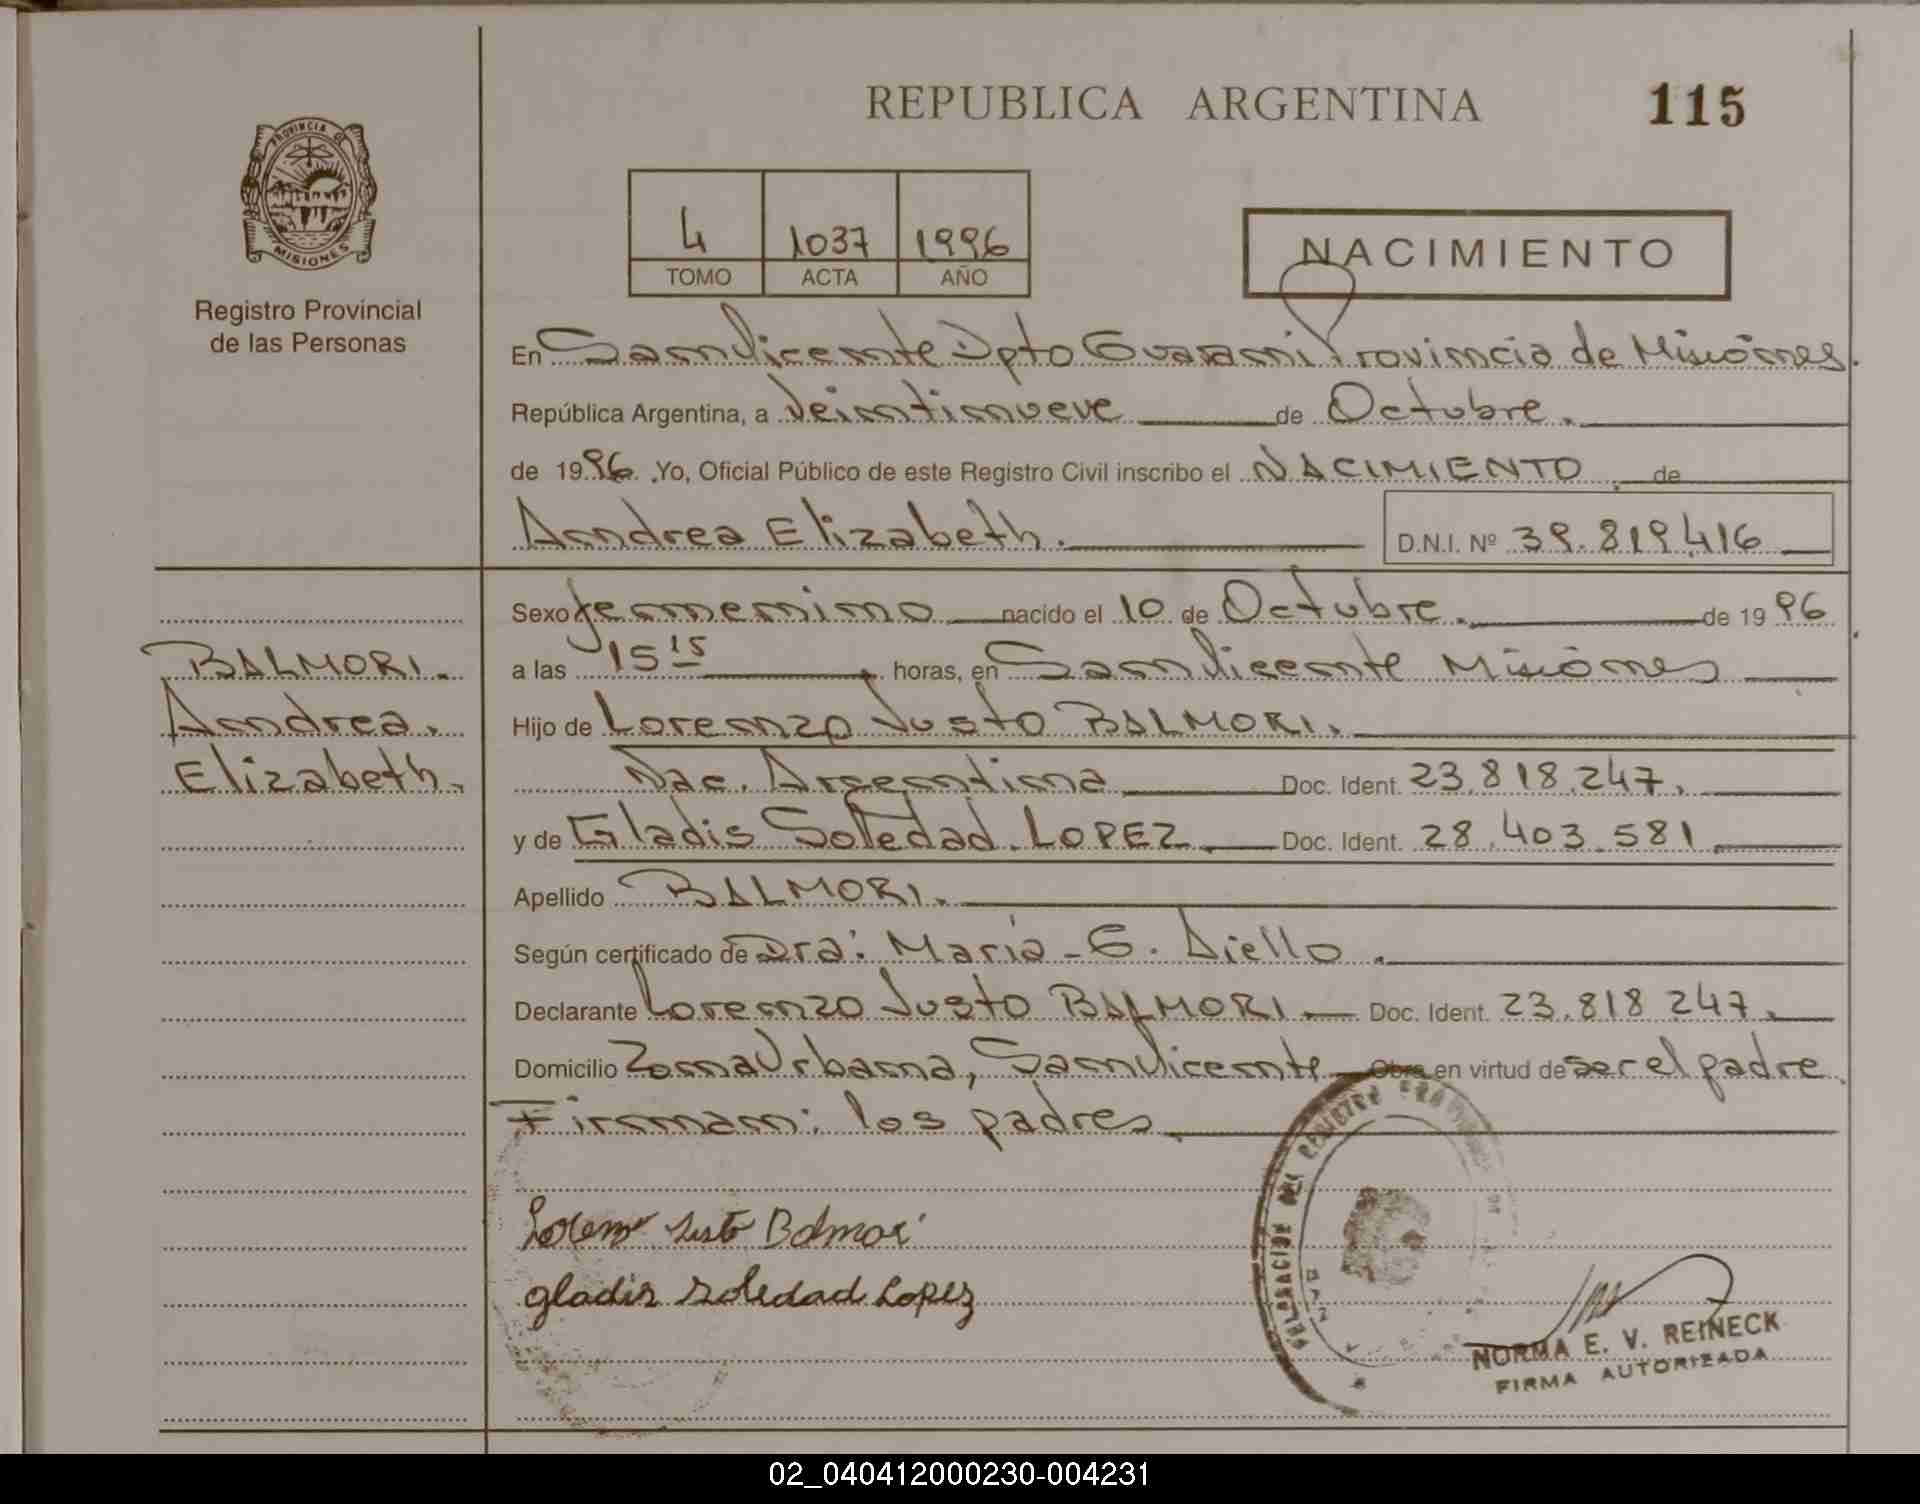 REPUBLICA ARGENTINA
115
PROVINCIA DE
MISIONES
Registro Provincial
de las Personas
4 1037 1996
TOMO ACTA AÑO
NACIMIENTO
En San Vicente Dpto Guarani Provincia de Misiones.
República Argentina, a Veintinueve de Octubre.
de 1996. Yo, Oficial Público de este Registro Civil inscribo el NACIMIENTO de
Andrea Elizabeth. D.N.I. Nº 39.819.416
Sexo femenino nacido el 10 de Octubre. de 1996
a las 15 15 horas, en San Vicente Misiones
BALMORI.
Andrea.
Elizabeth.
Hijo de Lorenzo Justo BALMORI.
Nac. Argentina Doc. Ident. 23.818.247.
y de Gladis Soledad LOPEZ. Doc. Ident. 28.403.581
Apellido BALMORI.
Según certificado de Dra: María - G. Aiello.
Declarante Lorenzo Justo BALMORI Doc. Ident. 23.818 247.
Domicilio Zona Urbana, San Vicente Obra en virtud de ser el padre.
Firman: los padres
Justo Balmori
gladis soledad Lopez
DEL REGISTRO
NORMA E. V. REINECK
FIRMA AUTORIZADA
02_040412000230-004231